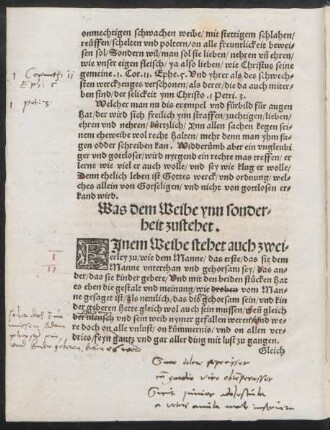 onmechtigen schwachen weibe/ mit stettigem schlahen/
reuffen/ schelten vnd poltern/ on alle freuntlickeit bewei-
sen sol/ Sondern wil/ man sol sie lieben/ nehren vñ ehren/
wie vnser eigen fleisch/ ya also lieben/ wie Christus seine
gemeine .1. Cor. 11. Ephe. 5. Vnd yhrer als des schwech-
sten werckzeuges verschonen/ als derer/ die da auch miter-
ben sind der selickeit ynn Christo .1 Petri. 2.
Welcher man nu dis exempel vnd fürbild für augen
hat/ der wird sich freilich ynn straffen/ zuchtigen/ lieben/
ehren vnd nehren/ kürtzlich/ Ynn allen sachen kegen sei-
nem eheweibe wol recht halten/ mehr denn man yhm sa-
gen odder schreiben kan. Widderümb aber ein vngleubi-
ger vnd gottloser/ wird nyrgend ein rechte mas treffen/ er
lerne wie viel er auch wolle/ vnd sey wie klug er wolle/
Denn ehelich leben ist Gottes werck vnd ordnung/ wel-
ches allein von Gotseligen/ vnd nicht von gottlosen er-
kand wird.
Was dem Weibe ynn sonder-
heit zustehet.
EJnem Weibe stehet auch zwei-
erley zu/ wie dem Manne/ das erste/ das sie dem
Manne vnterthan vnd gehorsam sey/ Das an-
der/ das sie kinder gebere/ Vnd mit den beiden stücken hat
es eben die gestalt vnd meinung/ wie droben vom Manne
gesaget ist/ als nemlich/ das dis gehorsam sein/ vnd kin
der geberen Hette gleich wol auch sein mussen/ wen gleich
der mensch vnd sein weib nymer gefallen weren/ vnd we-
re doch on alle vnlust/ on kümmernis/ vnd on allen ver-
dries/ feyn gantz vnd gar aller ding mit lust zu gangen.
Gleich